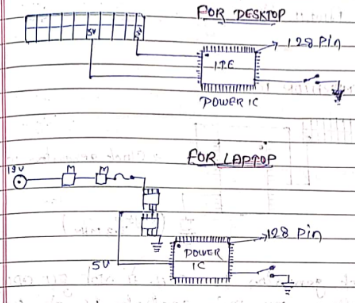 FOR DESKTOP
5V
128 Pin
ITE
POWER IC
FOR LAPTOP
19V
M M
128 Pin
POWER
IC
5V